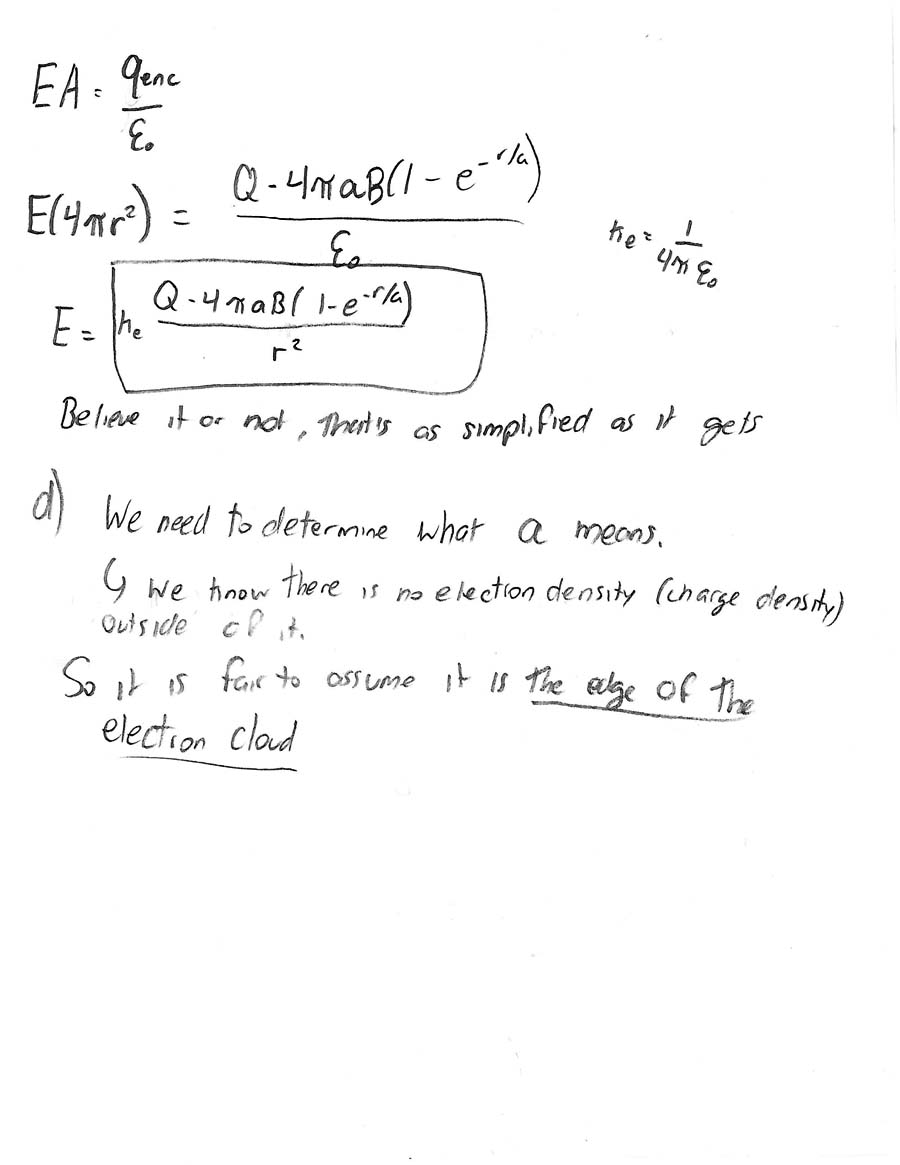 EA = qenc/ε₀
E(4πr²) = Q - 4πaB(1 - e^-r/a) / ε₀
ke = 1/4πε₀
E = ke Q - 4πaB(1-e^-r/a) / r²
Believe it or not, that's as simplified as it gets
d) We need to determine what a means.
↳ We know there is no electron density (charge density)
outside of it.
So it is fair to assume it is the edge of the
electron cloud